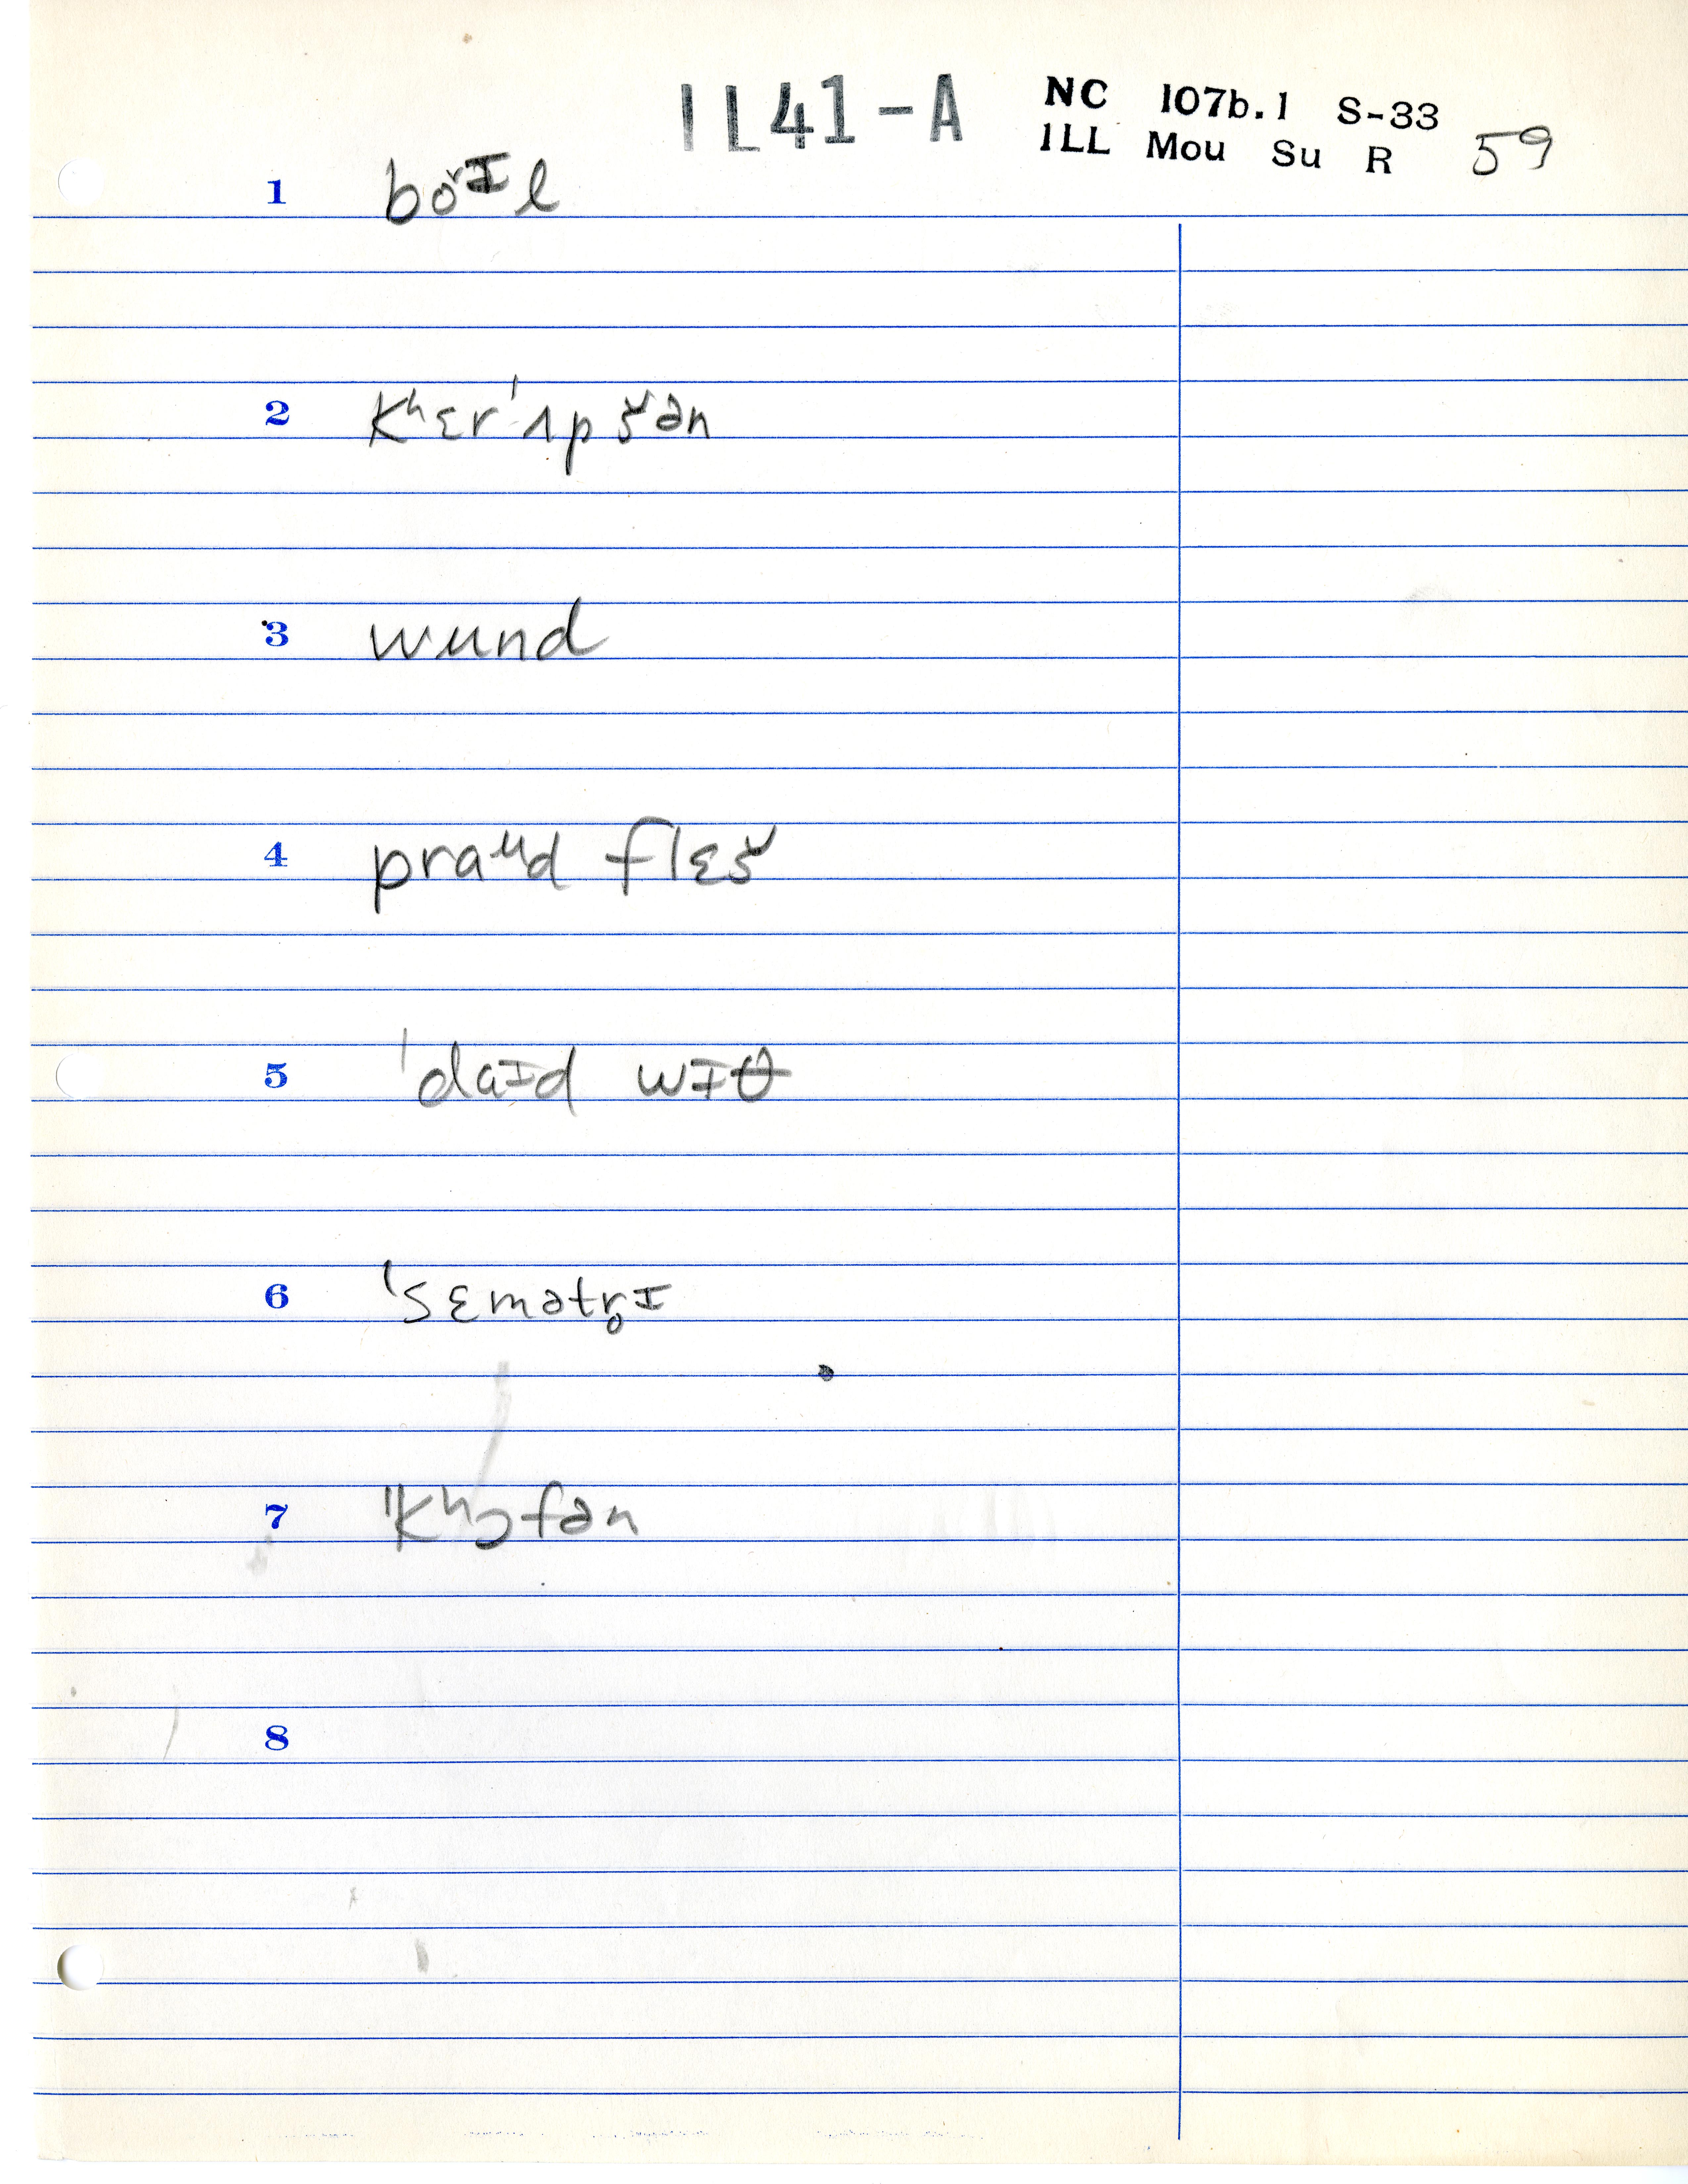 1L41-A
NC 107b.1 S-33
ILL Mou Su R 59
1 bo˅ᶦl
2 kʰɛr'ʌpšən
3 wund
4 praᵘd flɛš
5 'daɪd wɪθ
6 'sɛmətr̥ɪ
7 "kʰɔfən
8